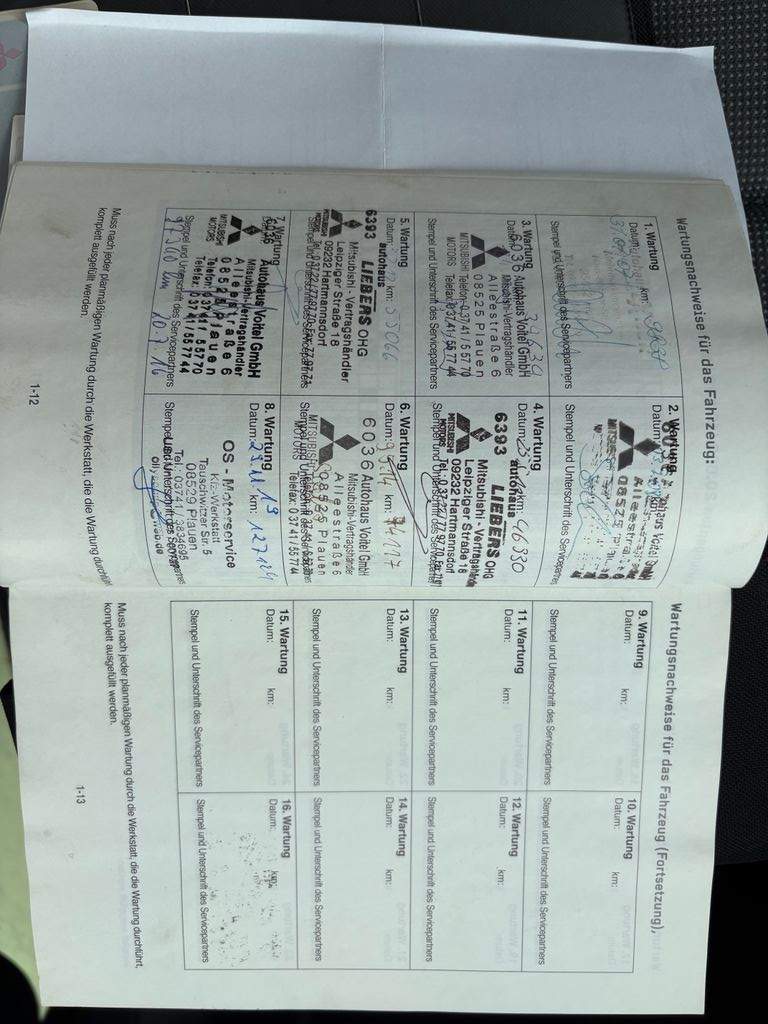 Wartungsnachweise für das Fahrzeug:
1. Wartung
Datum: km:
Stempel und Unterschrift des Servicepartners
2. Wartung
Datum:
Alleestraße
08525
Stempel und Unterschrift des Servicepartners
3. Wartung
Datum: km: 34634
6036 Autohaus Voitel GmbH
Mitsubishi-Vertragshändler
Alleestraße 6
08525 Plauen
MITSUBISHI Telefon 03741/55770
MOTORS Telefax 03741/557744
Stempel und Unterschrift des Servicepartners
4. Wartung
Datum: km: 46930
autohaus
6393 LIEBERS OHG
Mitsubishi-Vertragshändler
Leipziger Straße 18
09232 Hartmannsdorf
MITSUBISHI
MOTORS
Stempel und Unterschrift des Servicepartners
5. Wartung
Datum: km: 55016
autohaus
6393 LIEBERS OHG
Mitsubishi-Vertragshändler
Leipziger Straße 18
09232 Hartmannsdorf
MITSUBISHI
MOTORS
Stempel und Unterschrift des Servicepartners
6. Wartung
Datum: km: 74117
6036 Autohaus Voitel GmbH
Mitsubishi-Vertragshändler
Alleestraße 6
08525 Plauen
MITSUBISHI
MOTORS Telefax 03741/557744
Stempel und Unterschrift des Servicepartners
7. Wartung
6036 Autohaus Voitel GmbH
Mitsubishi-Vertragshändler
Alleestraße 6
08525 Plauen
MITSUBISHI Telefon: 03741/55770
MOTORS Telefax: 03741/557744
Stempel und Unterschrift des Servicepartners
km 20.7.16
8. Wartung
Datum: 29.11.19 km: 127184
OS - Motorservice
Kfz-Werkstatt
Tauschwitzer Str. 5
08529 Plauen
Tel.: 03741/
Stempel und Unterschrift des Servicepartners
Muss nach jeder planmäßigen Wartung durch die Werkstatt, die die Wartung durchführt,
komplett ausgefüllt werden.
1-12
Wartungsnachweise für das Fahrzeug (Fortsetzung),
9. Wartung
Datum: km:
Stempel und Unterschrift des Servicepartners
10. Wartung
Datum: km:
Stempel und Unterschrift des Servicepartners
11. Wartung
Datum: km:
Stempel und Unterschrift des Servicepartners
12. Wartung
Datum: km:
Stempel und Unterschrift des Servicepartners
13. Wartung
Datum: km:
Stempel und Unterschrift des Servicepartners
14. Wartung
Datum: km:
Stempel und Unterschrift des Servicepartners
15. Wartung
Datum: km:
Stempel und Unterschrift des Servicepartners
16. Wartung
Datum: km:
Stempel und Unterschrift des Servicepartners
Muss nach jeder planmäßigen Wartung durch die Werkstatt, die die Wartung durchführt,
komplett ausgefüllt werden.
1-13